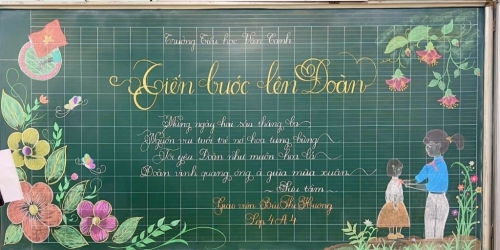 Trường Tiểu học Vân Canh
Tiến bước lên Đoàn
Mừng ngày hai sáu tháng ba
Nguồn vui tuổi trẻ nở hoa tưng bừng
Tôi yêu Đoàn như muôn hoa lá
Đoàn vinh quang óng ả giữa mùa xuân
Sưu tầm
Giáo viên Bùi Thị Phương
Lớp 4A4